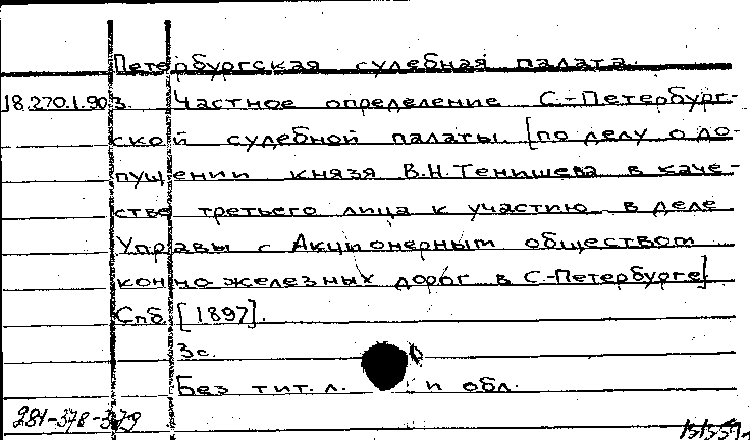 Петербургская судебная палата.
18.270.1.903. Частное определение С.-Петербург-
ской судебной палаты [по делу о до-
пущении князя В.Н.Тенишева в каче-
стве третьего лица к участию в деле
Управы с Акционерным обществом
конно-железных дорог в С.-Петербурге]
Спб. [1897].
3с.
Без тит. л. и обл.
281-378-379